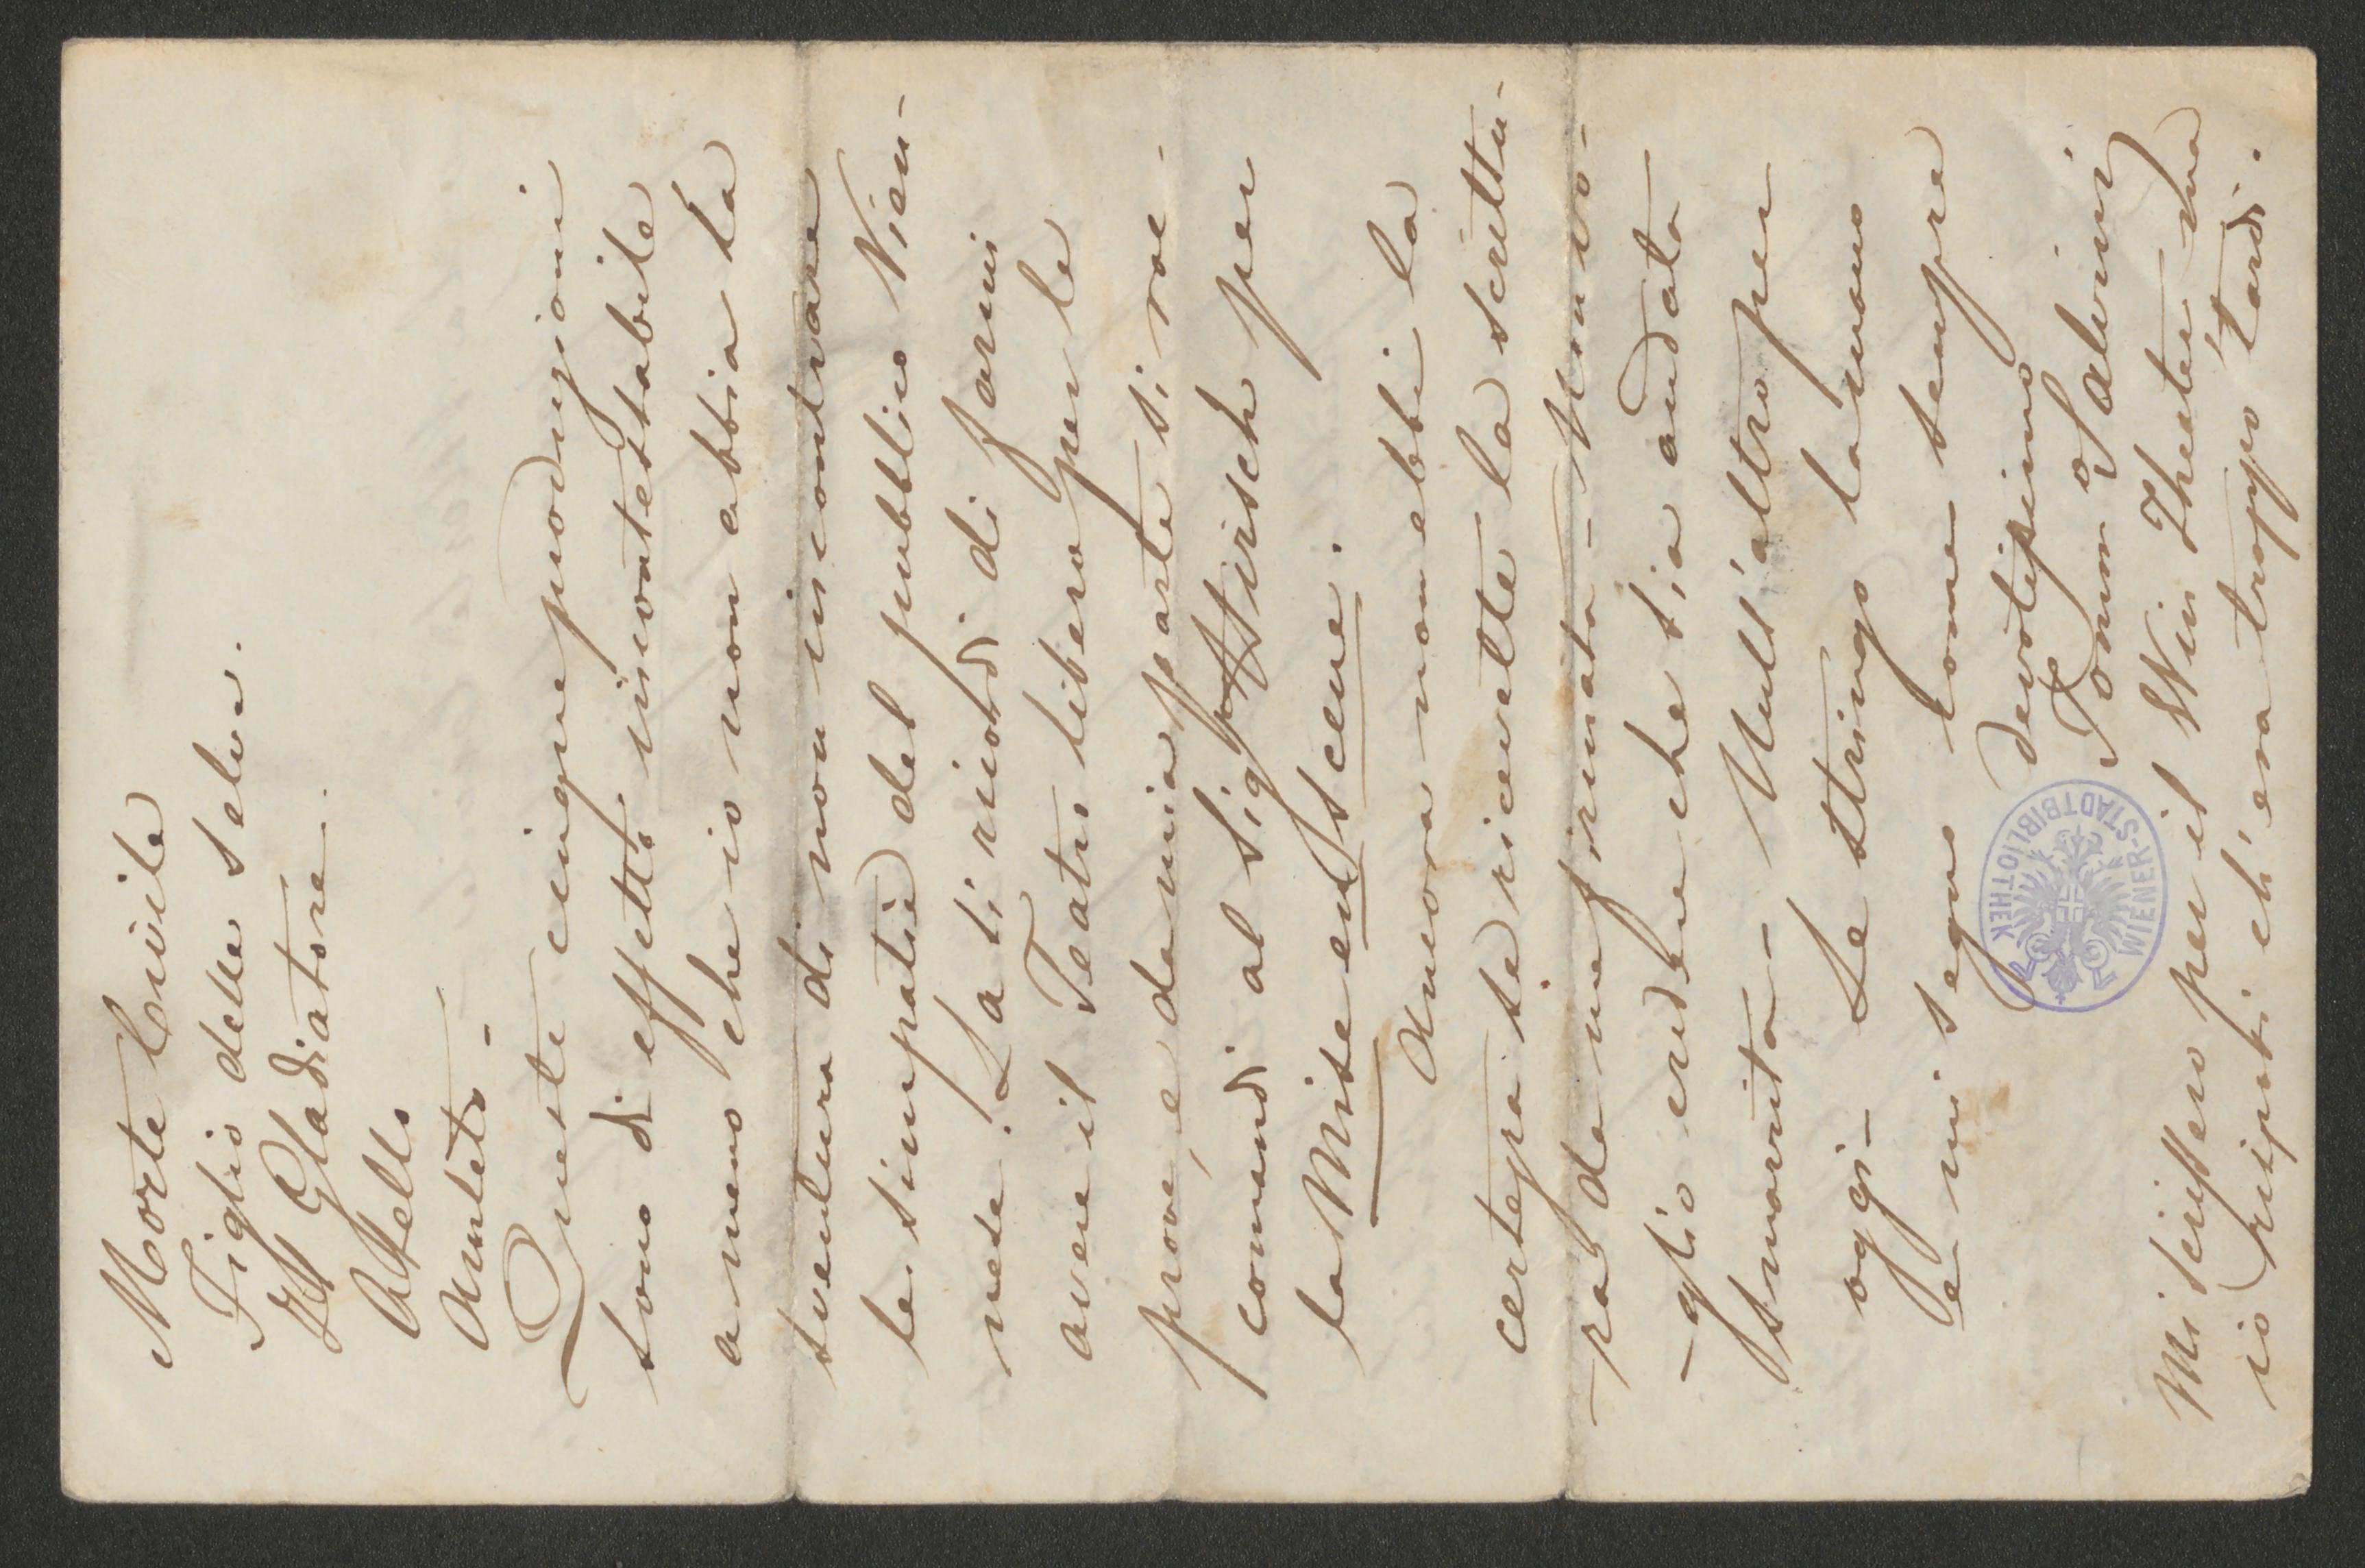 Morte Civile
Figlio delle Selve.
Il Gladiatore.
Otello
Amleto -
Queste cinque produzioni
sono di effetto incontestabile
a meno che io non abbia la
sventura di non incontrare
le simpatie del pubblico Vien-
nese. La si ricordi di farmi
avere il Teatro libero per le
prove, e da mia parte si rac-
comandi al Sig. Stirsch per
la Mise en Scene.
Ancora non ebbi la
certezza se riceveste la scrittu-
ra da me firmata - Non vo-
glio credere che sia andata
smarrita - Null'altro per
oggi - Le stringo la mano
e mi segno come sempre
devotissimo
Tommo Salvini
WIENER-STADTBIBLIOTHEK
Mi scrissero per il Win Theater ma
io risposi ch'era troppo tardi.